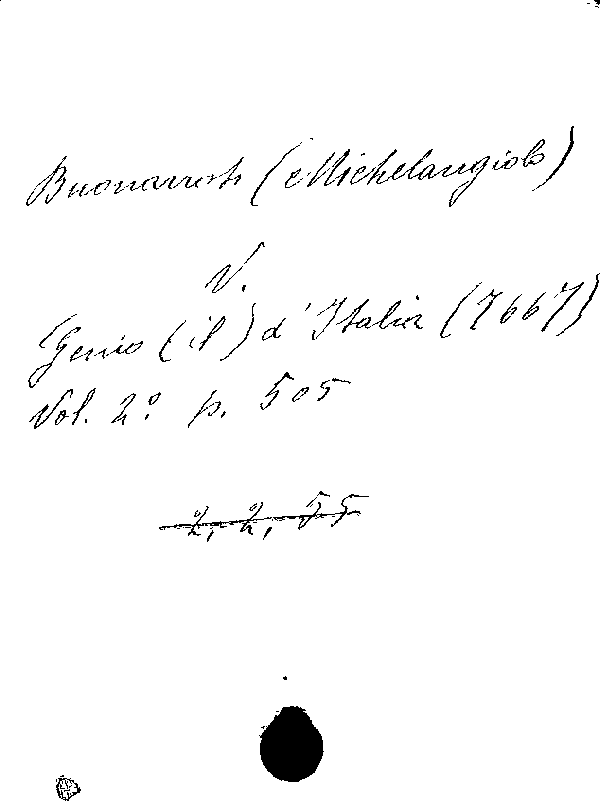 Buonarroti (Michelangiolo)
V.
Genio (il) d'Italia (7667)
Vol. 2º p. 505
2, 2, 55